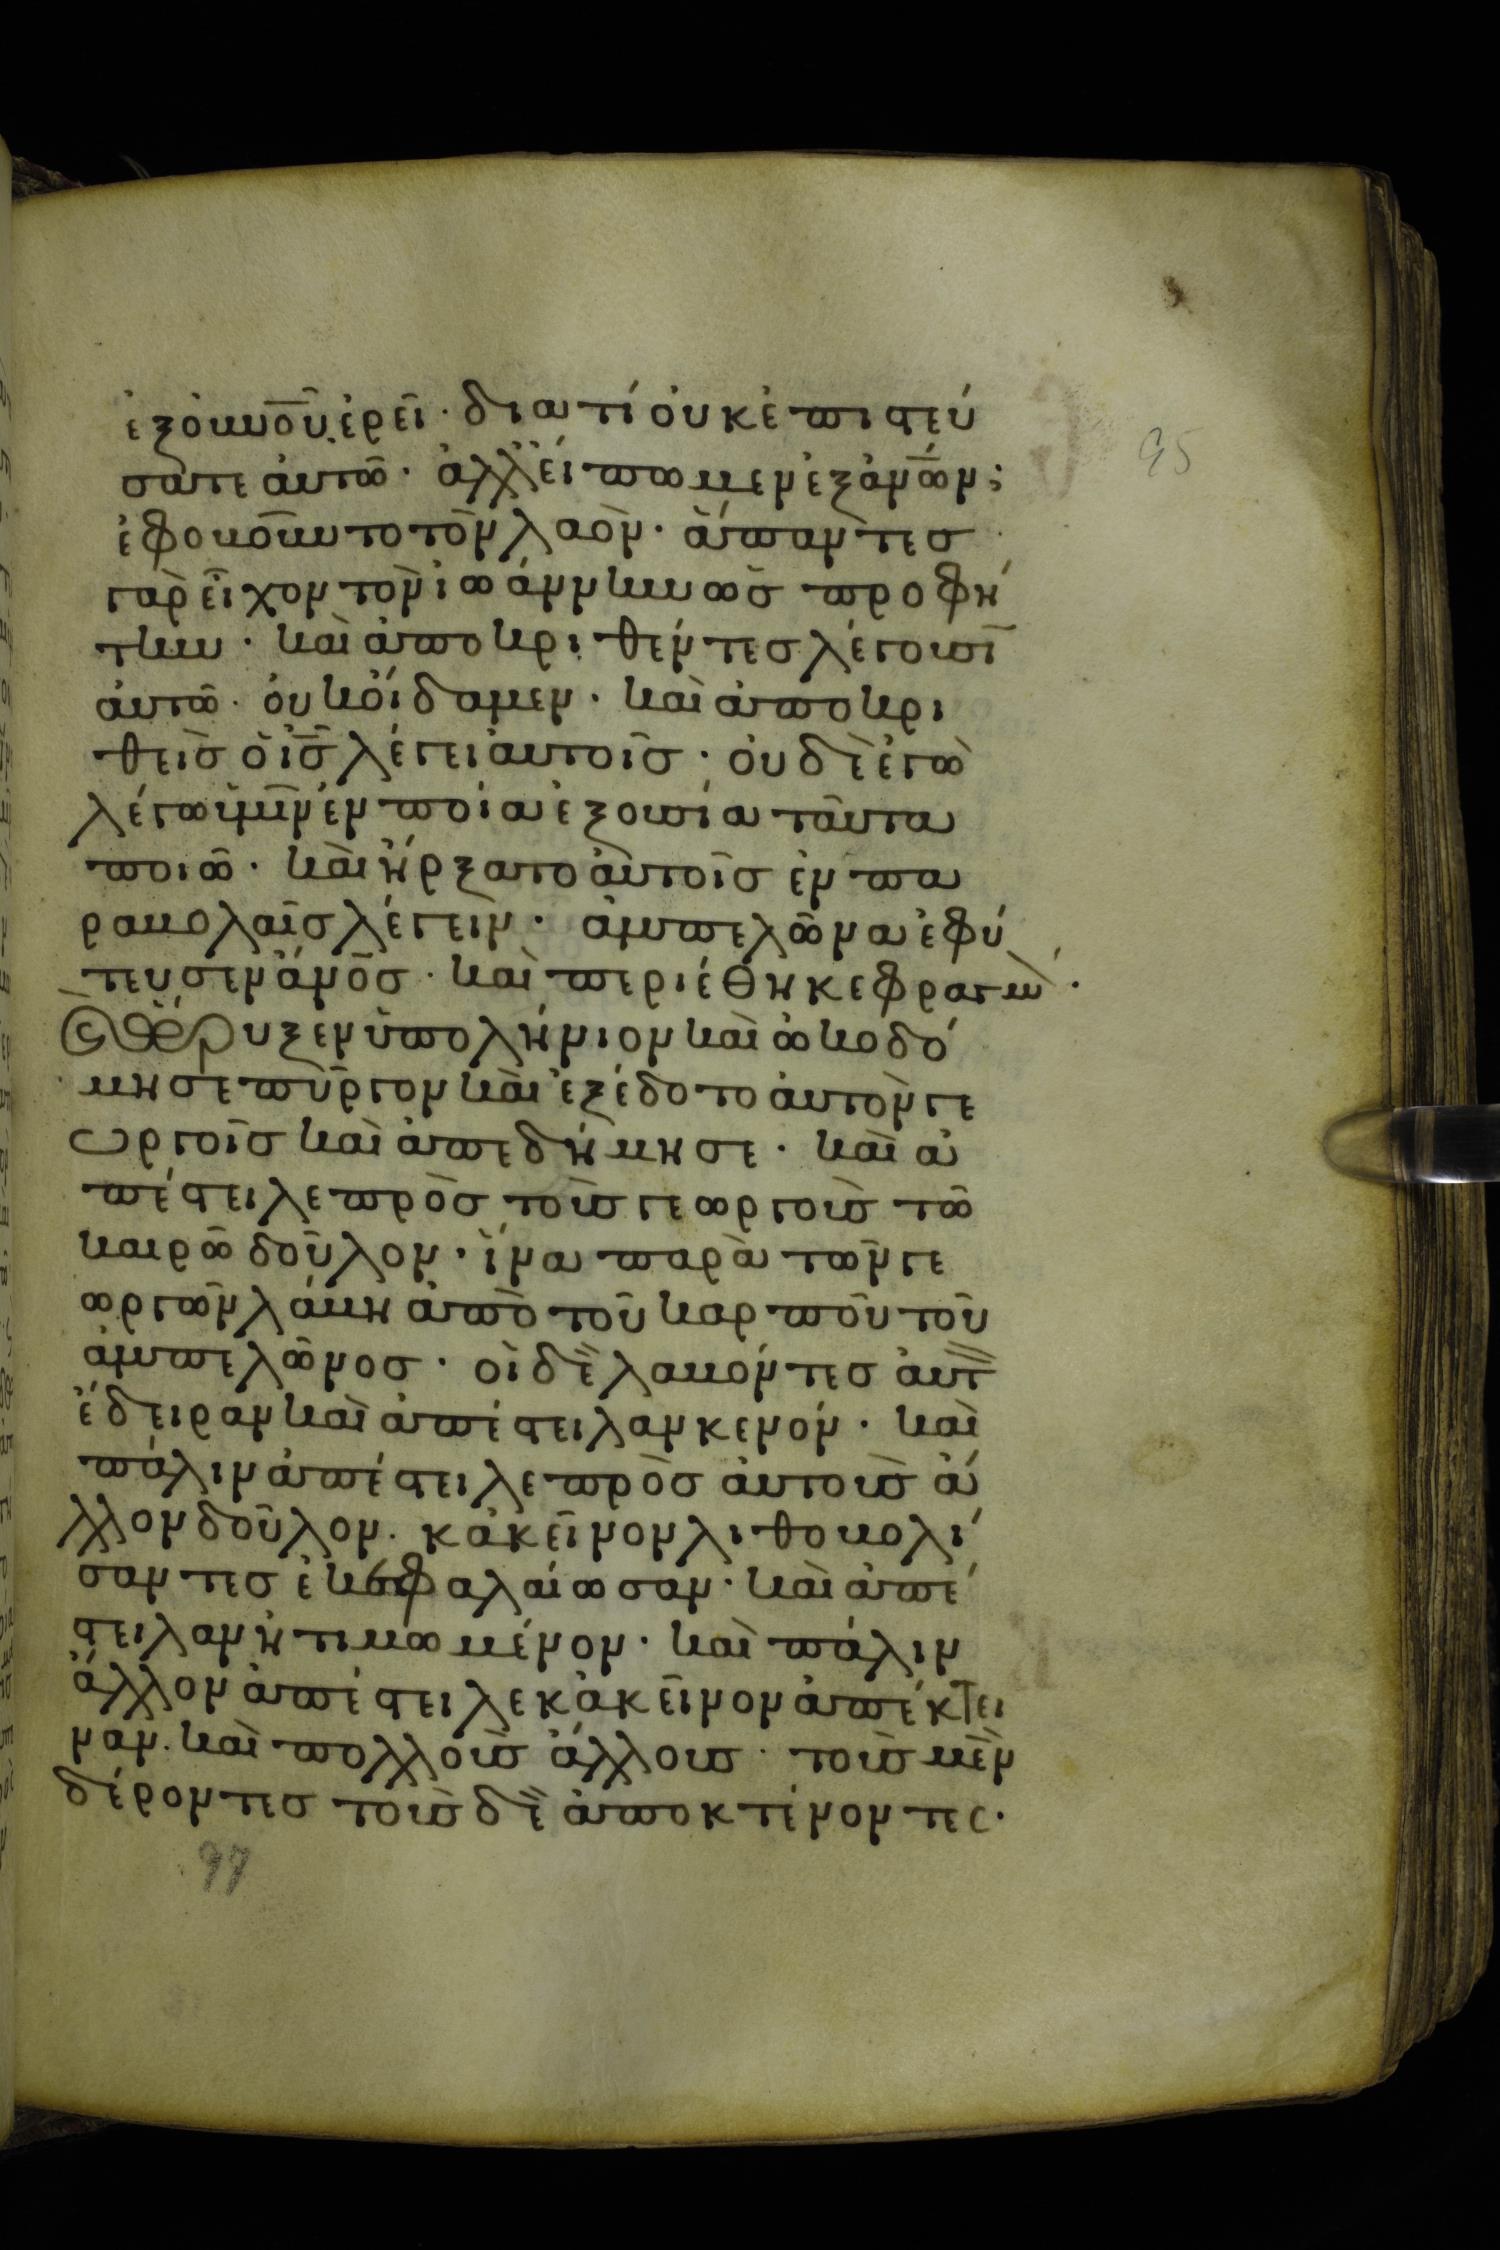 ἐξ ὀυνοῦ, ἐρεῖ· διατί ὀυκ ἐπιστεύ
σατε ἀυτῶ· ἀλλ εἴπωμεν ἐξ ἀν̅ω̅ν;
ἐφοβοῦντο τὸν λαόν· ἅπαντεσ
γὰρ εἶχον τὸν ἰωάννην ὡσ προφή
την· καὶ ἀποκριθέντεσ λέγουσῖ
ἀυτῶ· ὀυκ ὄιδαμεν· καὶ ἀποκρι
θεὶσ ὁ ι̅σ̅ λέγει ἀυτοῖσ· ὀυδὲ ἐγὼ
λέγω ὑμῖν ἐν ποία ἐξουσία ταῦτα
ποιῶ· καὶ ἤρξατο ἀυτοῖσ ἐν πα
ραβολαῖσ λέγειν· ἀμπελῶνα ἐφύ
τευσεν ἀ̅ν̅ο̅σ̅· καὶ περιέθηκε φραγμὸν·
καὶ ὤρυξεν ὑπολήνιον καὶ ὠκοδό
μησε πῦργον καὶ ἐξέδοτο ἀυτὸν γε
ωργοῖσ καὶ ἀπεδήμησε· καὶ ἀ
πέστειλε πρὸσ τοὺσ γεωργοὺσ τῶ
καιρῶ δοῦλον· ἵνα παρὰ τῶν γε
ωργῶν λάβη ἀπὸ τοῦ καρποῦ τοῦ
ἀμπελῶνοσ· οἱ δὲ λαβόντεσ ἀυτ
ἔδειραν καὶ ἀπέστειλαν κενόν· καὶ
πάλιν ἀπέστειλε πρὸσ ἀυτοὺσ ἄ
λλον δοῦλον· κἀκεῖνον λιθοβολί
σαντεσ ἐκεφαλαίωσαν· καὶ ἀπέ
στειλαν ἠτιμωμένον· καὶ πάλιν
ἄλλον ἀπέστειλε κἀκεῖνον ἀπέκτει
ναν· καὶ πολλοὺσ ἄλλουσ· τοὺσ μὲν
δέροντεσ τοὺσ δὲ ἀποκτένοντες·
95
97